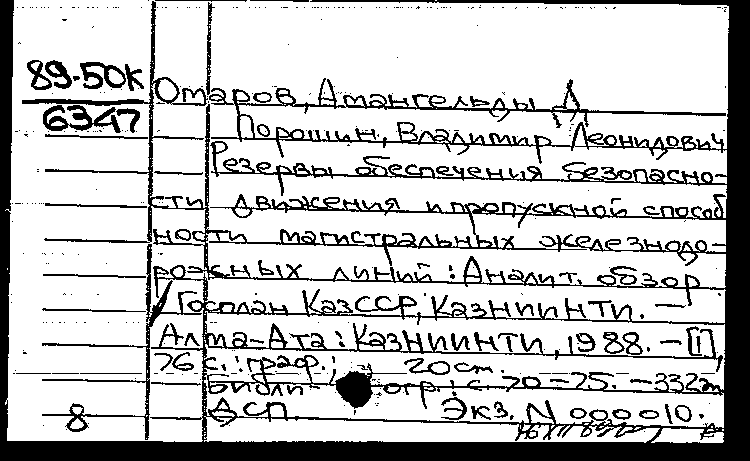 89-50К
6347
Омаров, Амангельды Д
Порошин, Владимир Леонидович
Резервы обеспечения безопасно-
сти движения и пропускной способ
ности магистральных железнодо-
рожных линий : Аналит. обзор
/ Госплан КазССР, КазНИИНТИ. —
Алма-Ата : КазНИИНТИ, 1988. – [1],
76 с. : граф. ; 20 см.
Библи- огр.: с. 70-75. – 332
ДСП. Экз. N 000010.
8